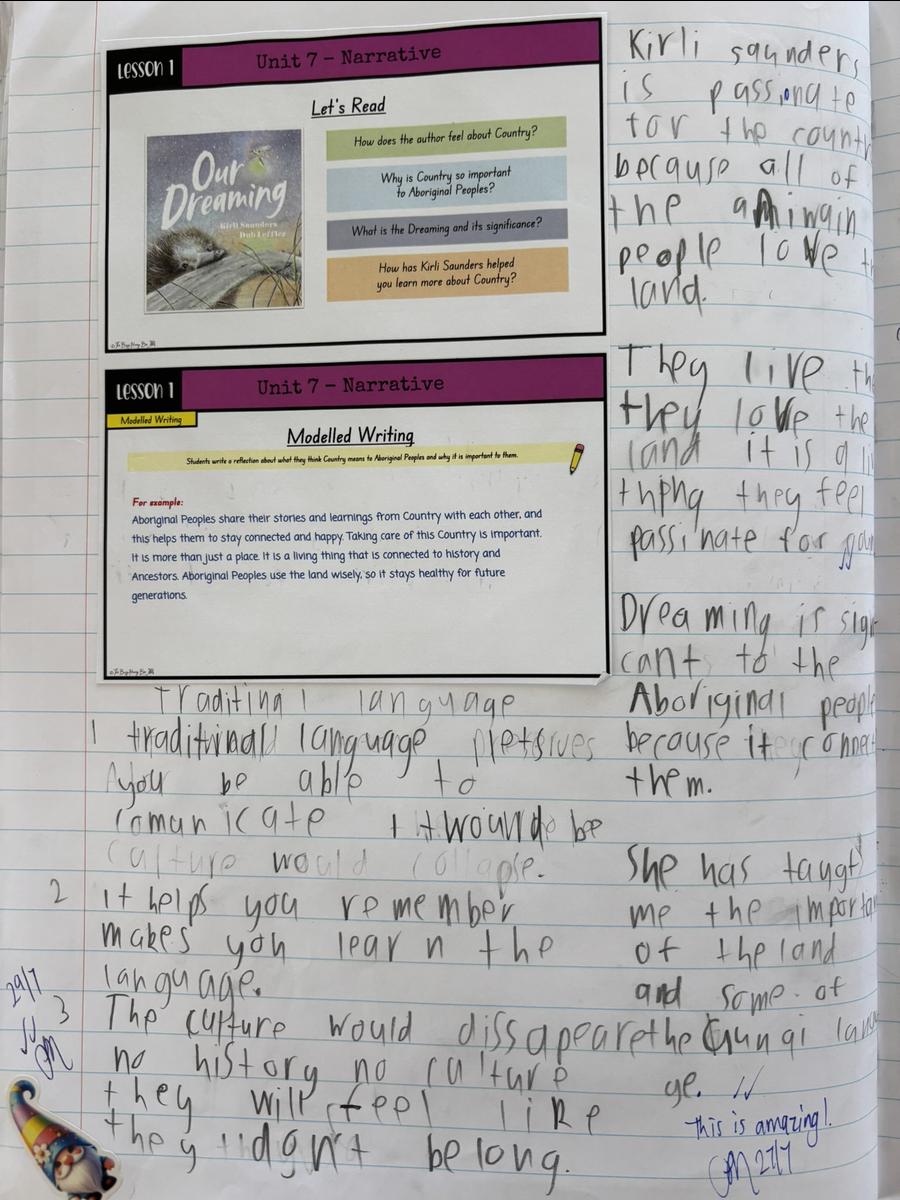 LESSON 1
Unit 7 – Narrative
Let's Read
Our
Dreaming
Kirli Saunders
Dub Leffler
How does the author feel about Country?
Why is Country so important
to Aboriginal Peoples?
What is the Dreaming and its significance?
How has Kirli Saunders helped
you learn more about Country?
LESSON 1
Unit 7 – Narrative
Modelled Writing
Modelled Writing
Students write a reflection about what they think Country means to Aboriginal Peoples and why it is important to them.
For example:
Aboriginal Peoples share their stories and learnings from Country with each other, and
this helps them to stay connected and happy. Taking care of this Country is important.
It is more than just a place. It is a living thing that is connected to history and
Ancestors. Aboriginal Peoples use the land wisely, so it stays healthy for future
generations.
Kirli saunders
is passionate
for the countr
because all of
the
people love
land.
They live the
they love the
land it is a li
thing they feel
passinate for
Dreaming is sig
cant to the
Aboriginal people
because it connect
them.
She has taugt
me the importa
of the land
and some of
the Gungi lang
ge.
this is amazing!
27/7
Traditinal language
1 traditinal language
you be able to
comunicate be
culture would collapse.
2 it helps you remember
makes you learn the
language.
29/7
3 The culture would dissapeare
no history no culture
they will feel like
they dont belong.